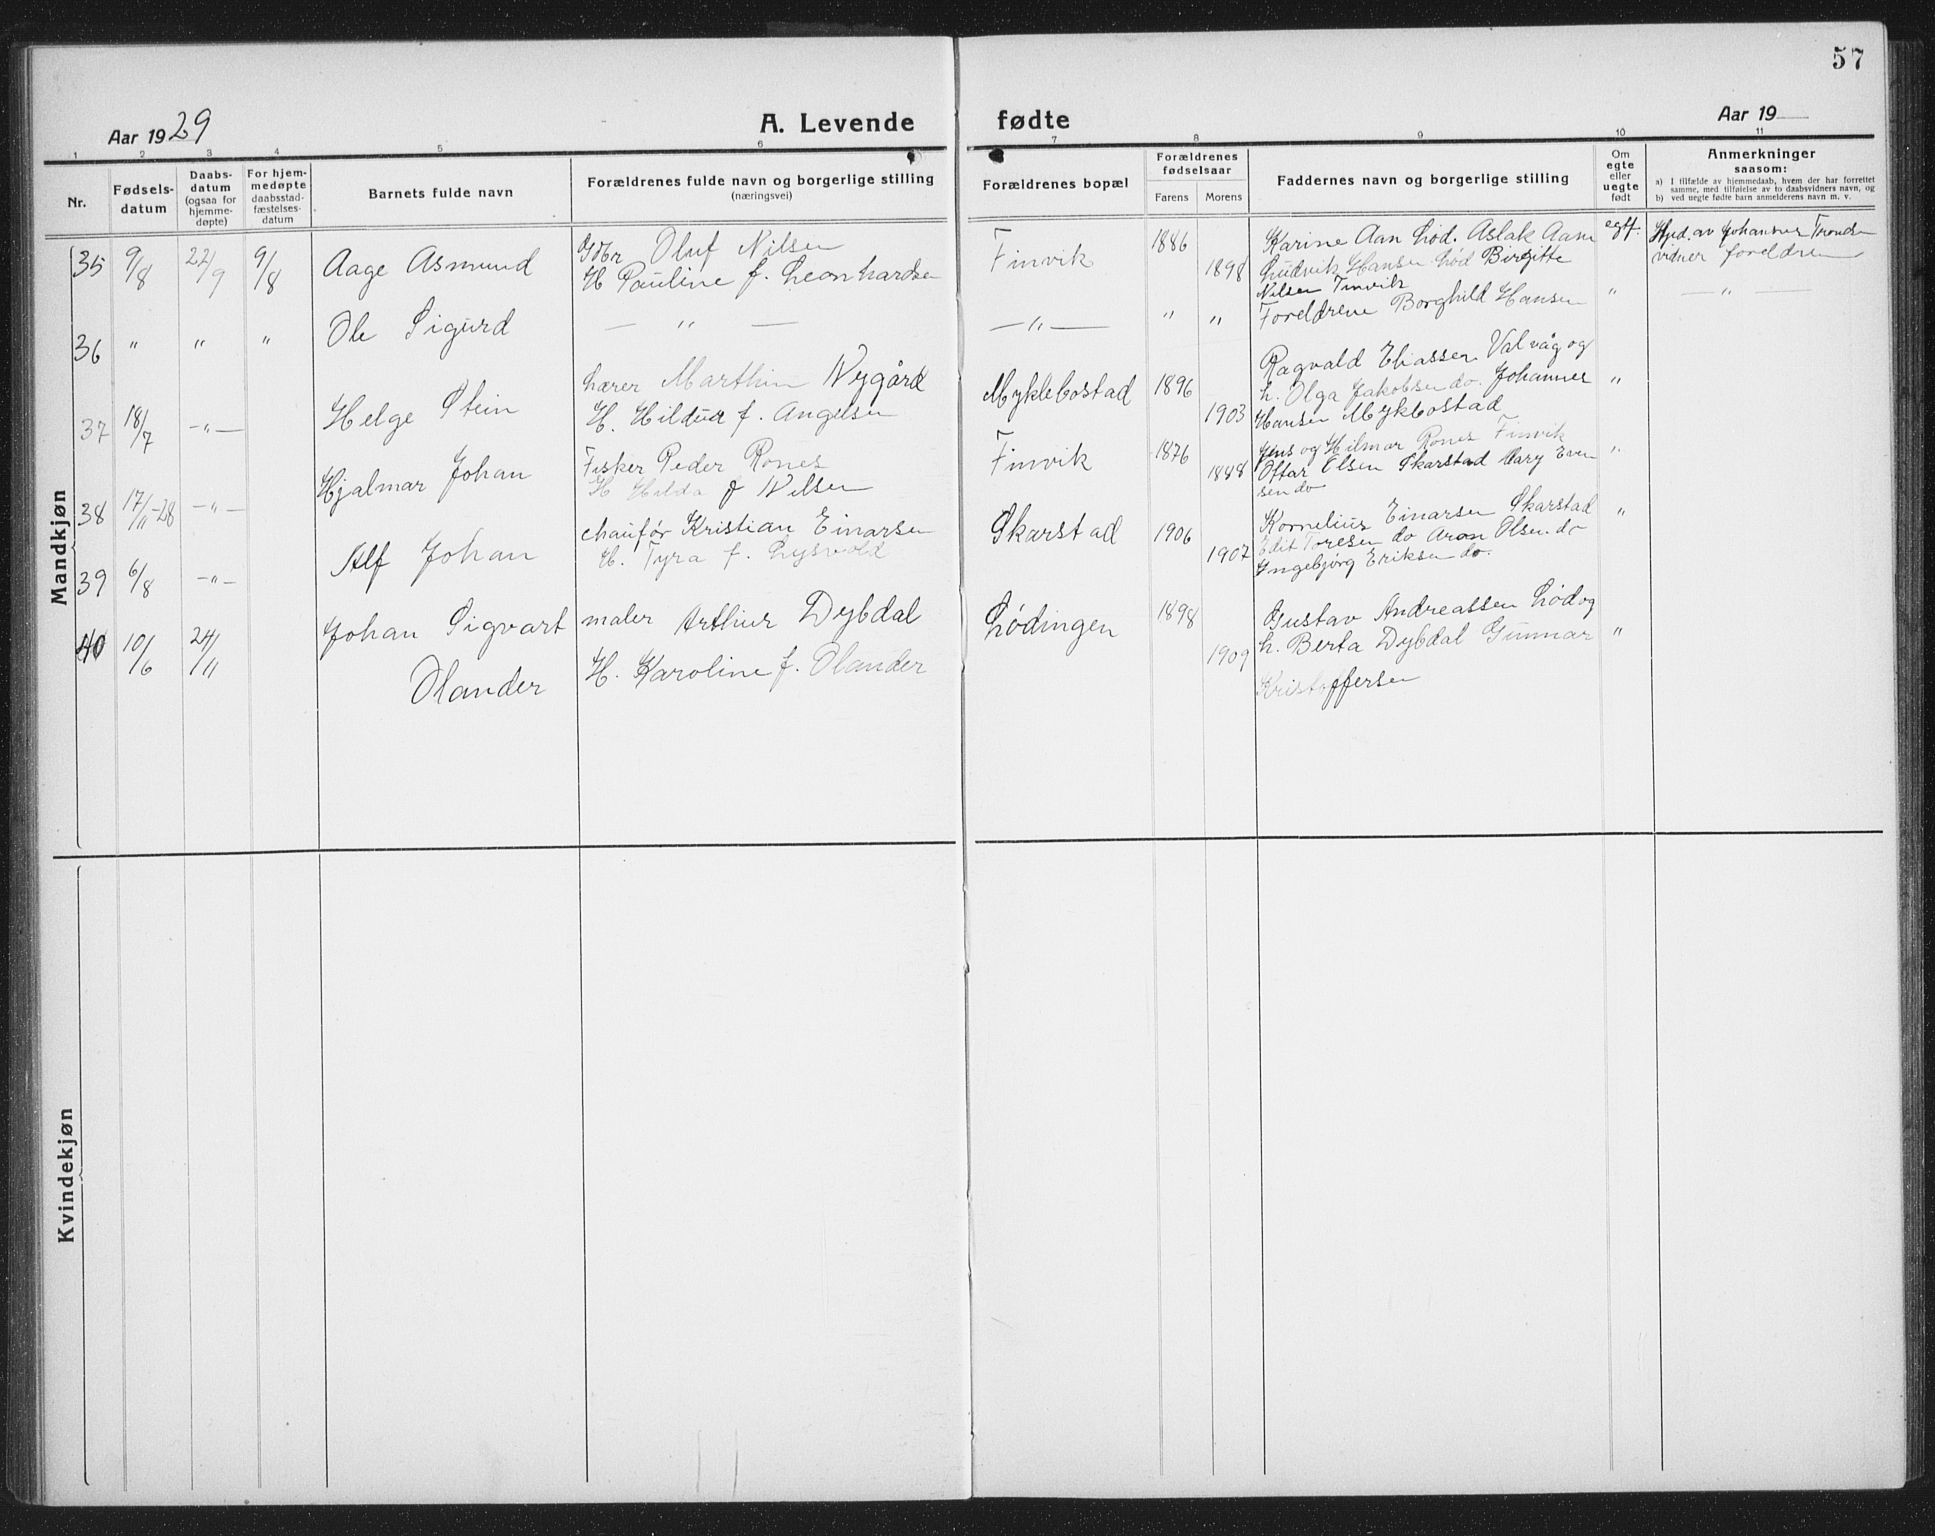 57
Aar 1929
A. Levende
fødte
Aar 19
1 2 3 4 5 6 7 8 9 10 11
Nr.
Fødsels-
datum
Daabs-
datum
(ogsaa for
hjemme-
døpte)
For hjem-
medøpte
daabsstad-
fæstelses-
datum
Barnets fulde navn
Forældrenes fulde navn og borgerlige stilling
(næringsvei)
Forældrenes bopæl
Forældrenes
fødselsaar
Farens Morens
Faddernes navn og borgerlige stilling
Om
egte
eller
uegte
født
Anmerkninger
saasom:
a) I tilfælde av hjemmedaab, hvem der har forrettet
samme, med tilføielse av to daabsvidners navn, og
b) ved uegte fødte barn anmelderens navn m. v.
Mandkjøn
35 9/8 22/9 9/8 Aage Asmund
Gdbr Oluf Nilsen
H Pauline f. Leonhardsen
Finvik 1886 1898
Karine Aan Lød. Aslak Aan
Ludvik Hansen Lød Birgitte
Nilsen Finvik
egt.
Hjd. av Johannes Trondsen
vidner foreldrene
36 " " " Ole Sigurd
— " —
— " — " "
Foreldrene Borghild Hansen
"
— " —
37 18/7 — " — Helge Stein
Lærer Marthin Nygård
H. Hildur f. Angelsen
Myklebostad 1896 1903
Ragvald Eliassen Valvåg og
h. Olga Jakobsen do. Johannes
Hansen Mykbostad
"
38 17/11-28 — " — Hjalmar Johan
Fisker Peder Rones
H Hilda f Nilsen
Finvik 1876 1888
Jens og Hilmar Rones Finvik
Oftar Olsen Skarstad Mary Even
sen do
"
39 6/8 — " — Alf Johan
chaufør Kristian Einarsen
H. Tyra f. Lysvold
Skarstad 1906 1907
Kornelius Einarsen Skarstad
Edit Toresen do Aron Olsen do
Ingebjørg Eriksen do.
"
40 10/6 24/11 Johan Sigvart
Olander
maler Arthur Dybdal
H. Karoline f. Olander
Lødingen 1898 1909
Gustav Andreassen Lød og
h. Berta Dybdal Gunnar
Kristoffersen
"
Kvindekjøn